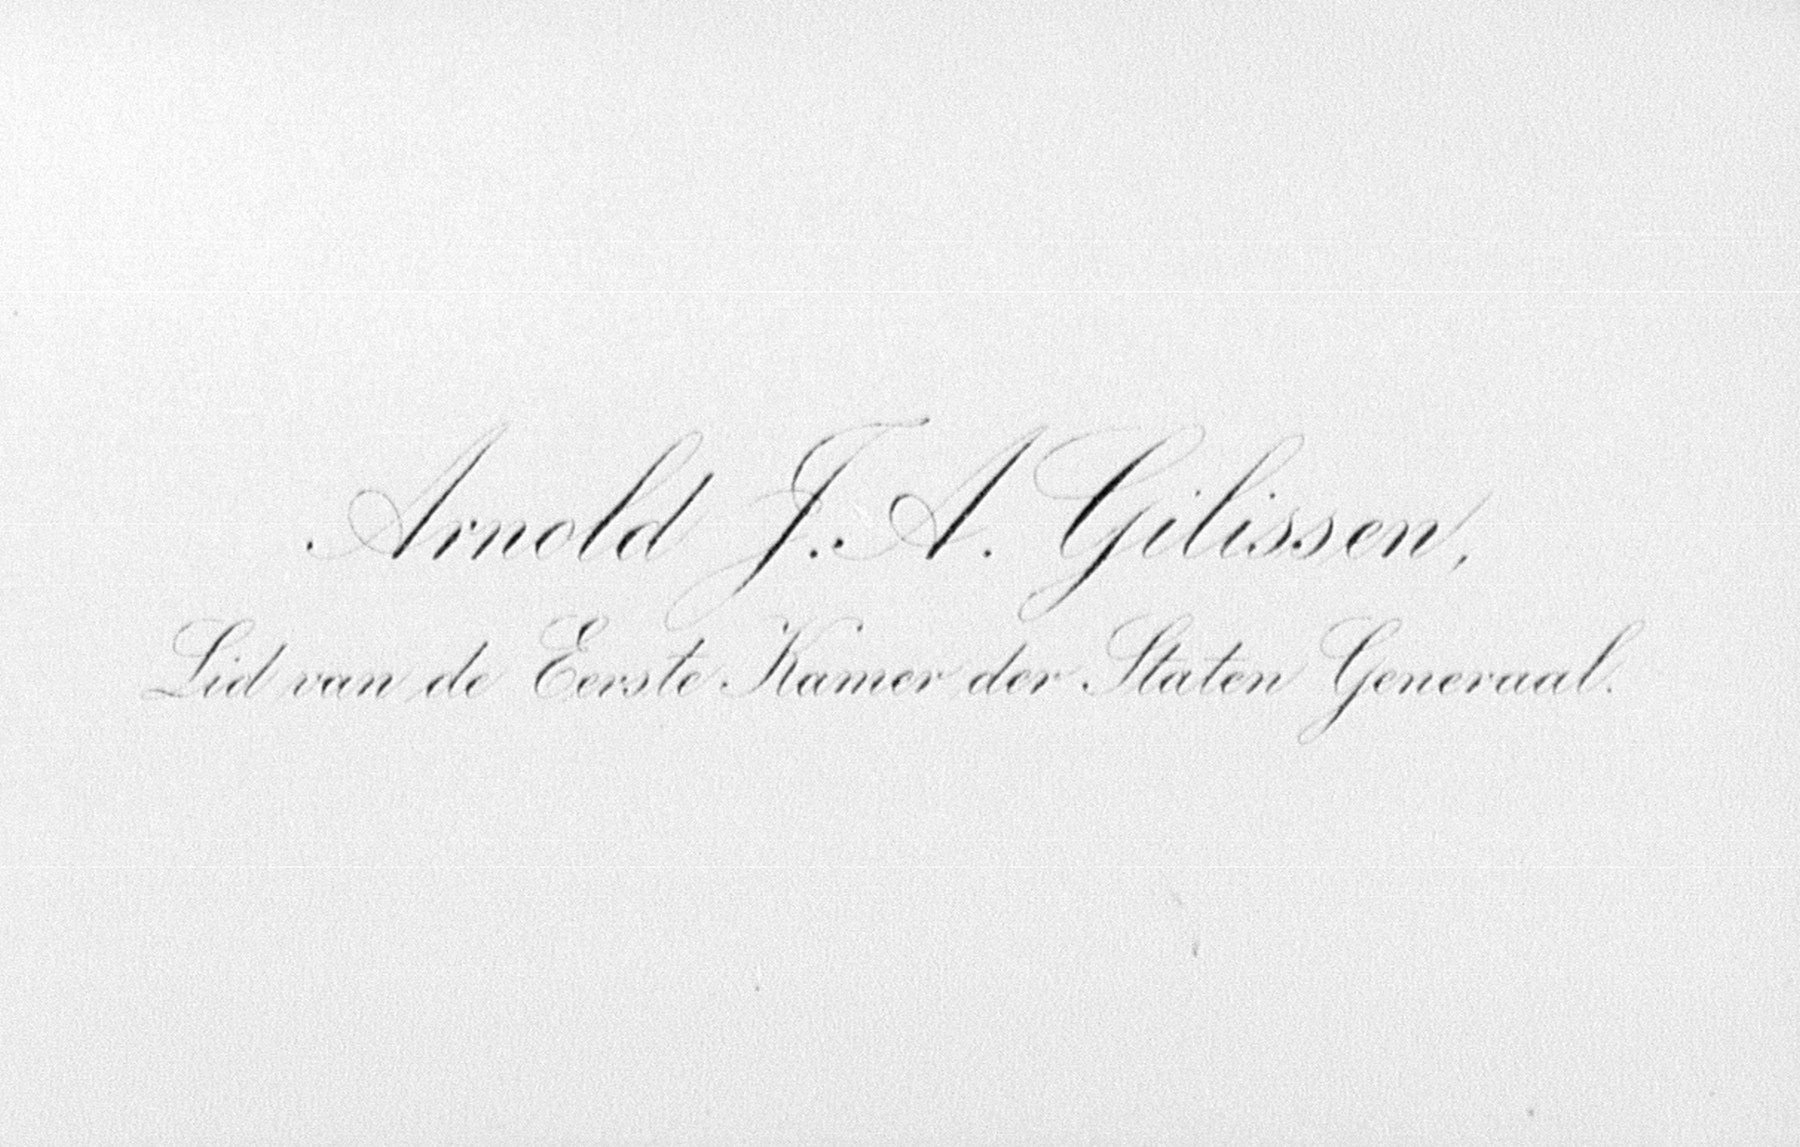 Arnold J. A. Gilissen,
Lid van de Eerste Kamer der Staten Generaal.